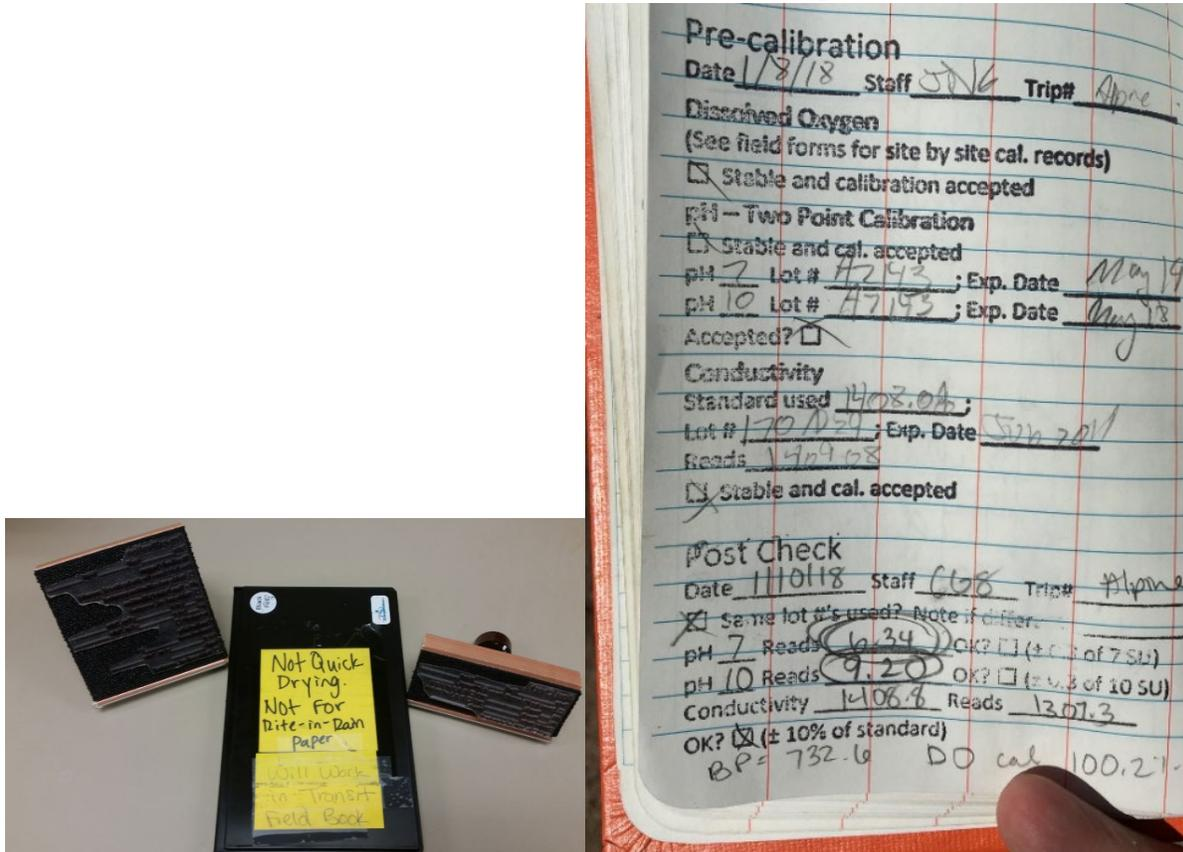 Not Quick
Drying.
Not For
Rite-in-Rain
Paper
Will Work
in Transit
Field Book
Pre-calibration
Date 1/8/18 Staff Trip# Alpine
Dissolved Oxygen
(See field forms for site by site cal. records)
Stable and calibration accepted
pH – Two Point Calibration
Stable and cal. accepted
pH 7 Lot # A7143 ; Exp. Date May 19
pH 10 Lot # A7193 ; Exp. Date May 18
Accepted?
Conductivity
Standard used ;
Lot # ; Exp. Date
Reads
Stable and cal. accepted
Post Check
Date 1/10/18 Staff Trip# Alpine
Same lot #'s used? Note if differ.
pH 7 Reads 6.34 OK? (± 0.3 of 7 SU)
pH 10 Reads 9.20 OK? (± 0.3 of 10 SU)
Conductivity 1408.8 Reads 1307.3
OK? (± 10% of standard)
BP= 732.6 DO cal 100.2%